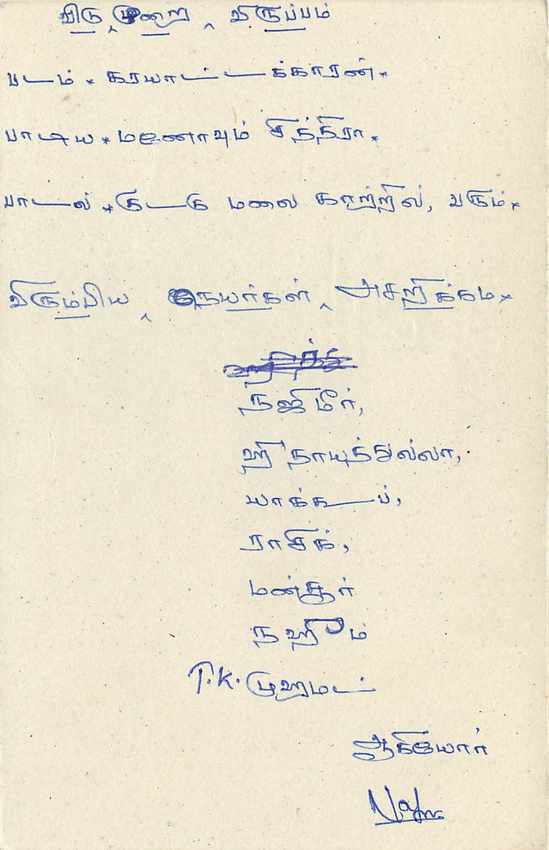 விடுமுறை விருப்பம்
படம் * கரயாட்டக்காரன் *
பாடிய * மனோவும் சித்திரா *
பாடல் * குடகு மலை காற்றில், வரும் *
விரும்பிய நேயர்கள்
நஜிமீர்,
ஹிதாயத்துல்லா,
யாக்கூப்,
ராசிக்,
மன்சூர்
நஹீம்
T.K. முஹமட்
ஆகியோர்